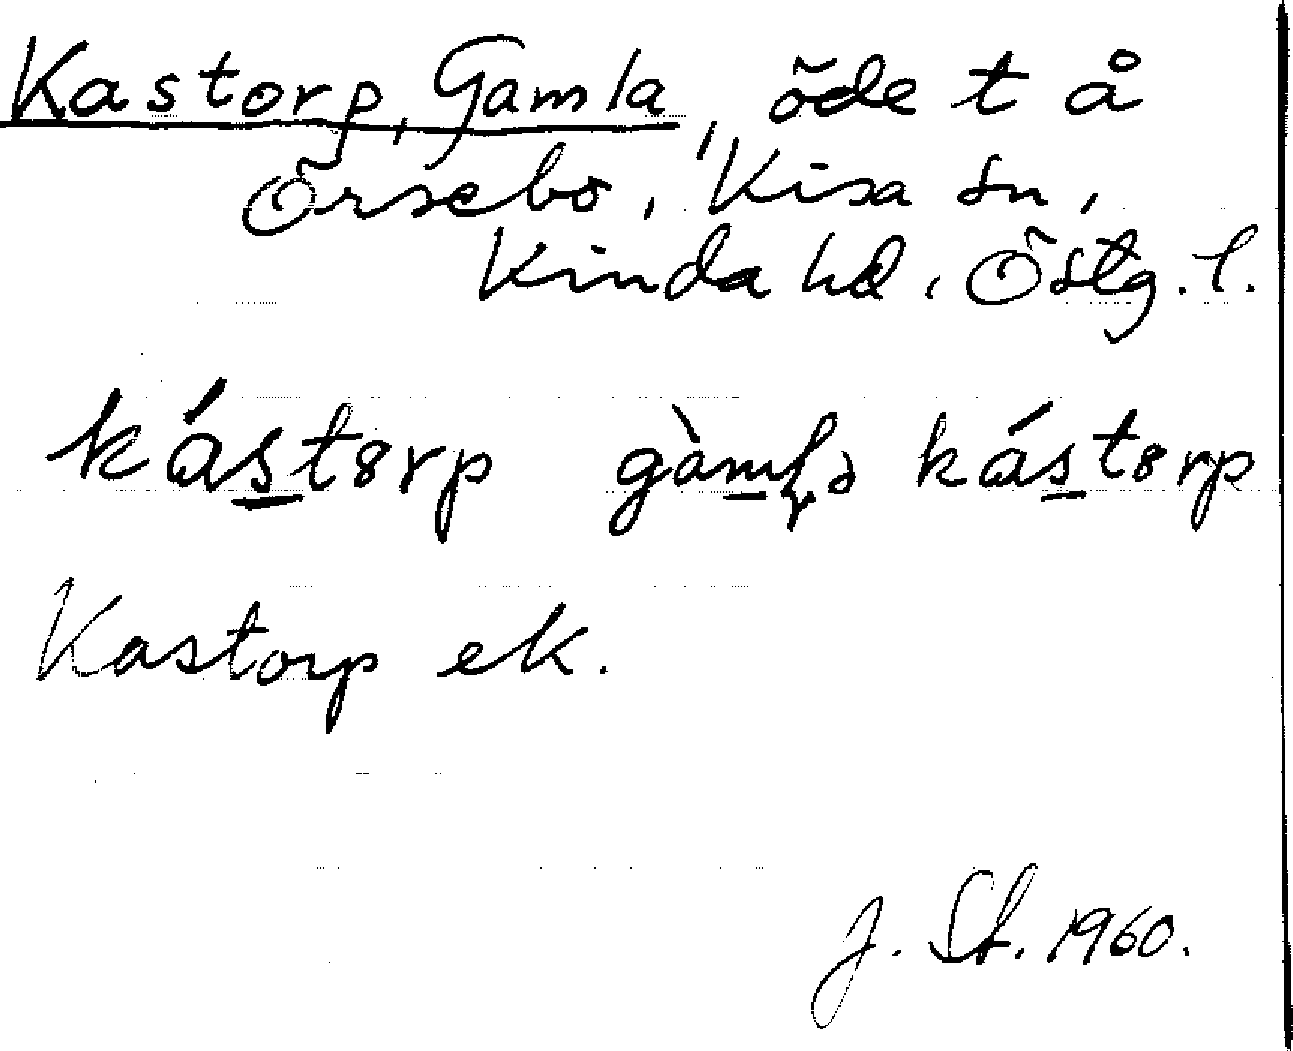 Kastorp, Gamla, öde t å
Örsebo, Kisa sn,
Kinda hd, Östg. l.
kástorp gàmla kástorp
Kastorp ek.
J. St. 1960.